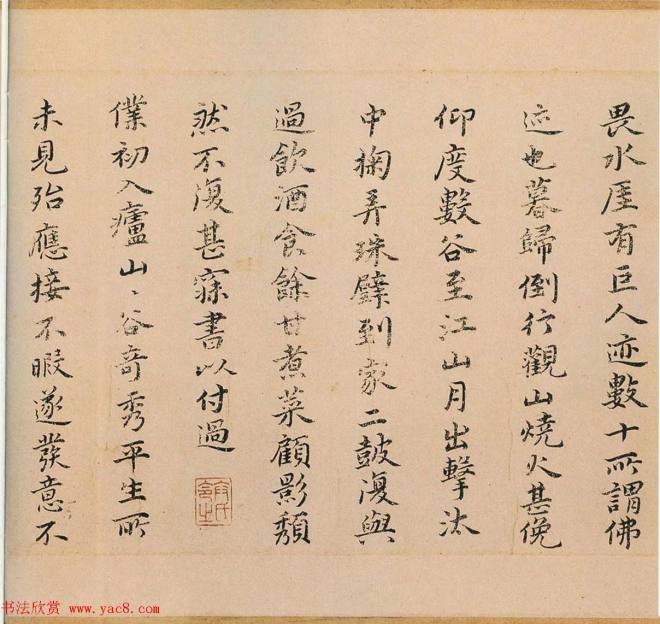 畏水厓有巨人迹數十所謂佛
迹也暮歸倒行觀山燒火甚俛
仰度數谷至江山月出擊汰
中掬弄珠璧到家二鼓復與
過飲酒食餘甘煮菜顧影頹
然不復甚寐書以付過
僕初入廬山〻谷奇秀平生所
未見殆應接不暇遂發意不
书法欣赏 www.yac8.com